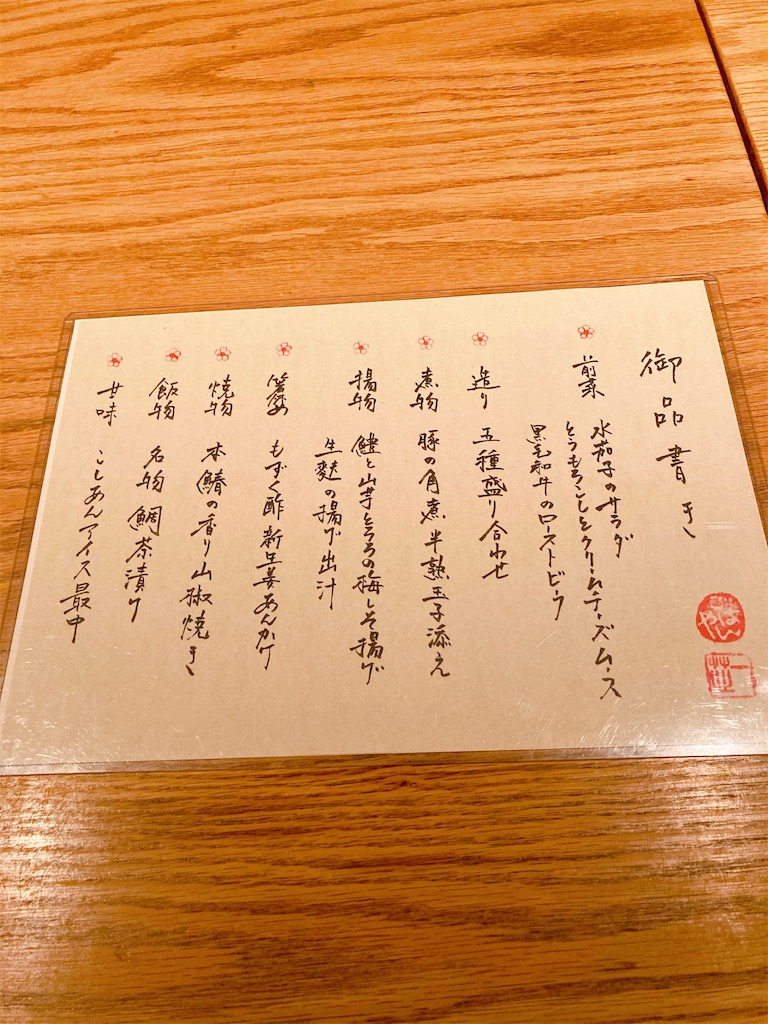 御品書き
前菜 水茄子のサラダ
とうもろこしとクリームチーズムース
黒毛和牛のローストビーフ
造り 五種盛り合わせ
煮物 豚の角煮 半熟玉子添え
揚物 鱧と山芋とろろの梅しそ揚げ
生麩の揚げ出汁
箸休め もずく酢 新生姜あんかけ
焼物 本鰆の香り山椒焼き
飯物 名物 鯛茶漬け
甘味 こしあんアイス最中